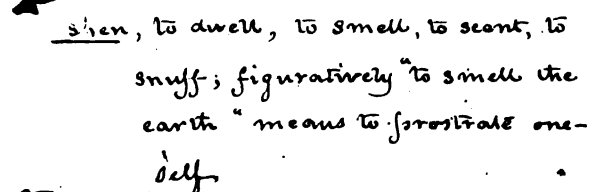 shen, to dwell, to smell, to scent, to
snuff; figuratively "to smell the
earth" means to prostrate one-
self.